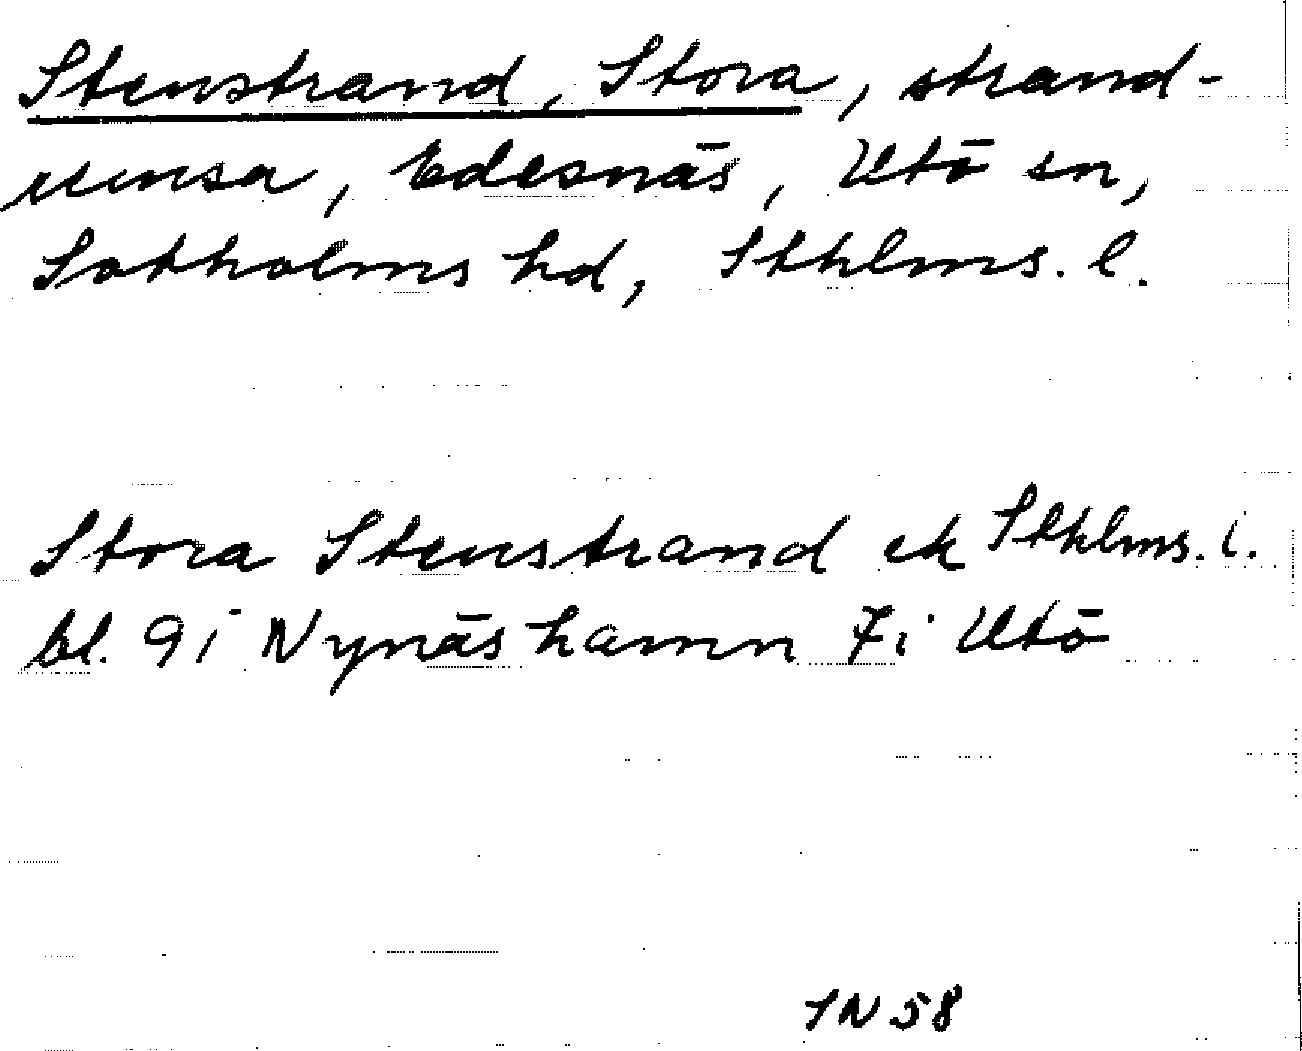 Stenstrand, Stora, strand-
remsa, Edesnäs, Utö sn,
Sotholms hd, Sthlms. l.
Stora Stenstrand ek Sthlms. l.
bl. 91 Nynäshamn 7i Utö
IN 58